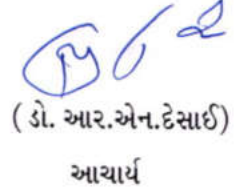 ( ડો. આર.એન.દેસાઈ)
આચાર્ય